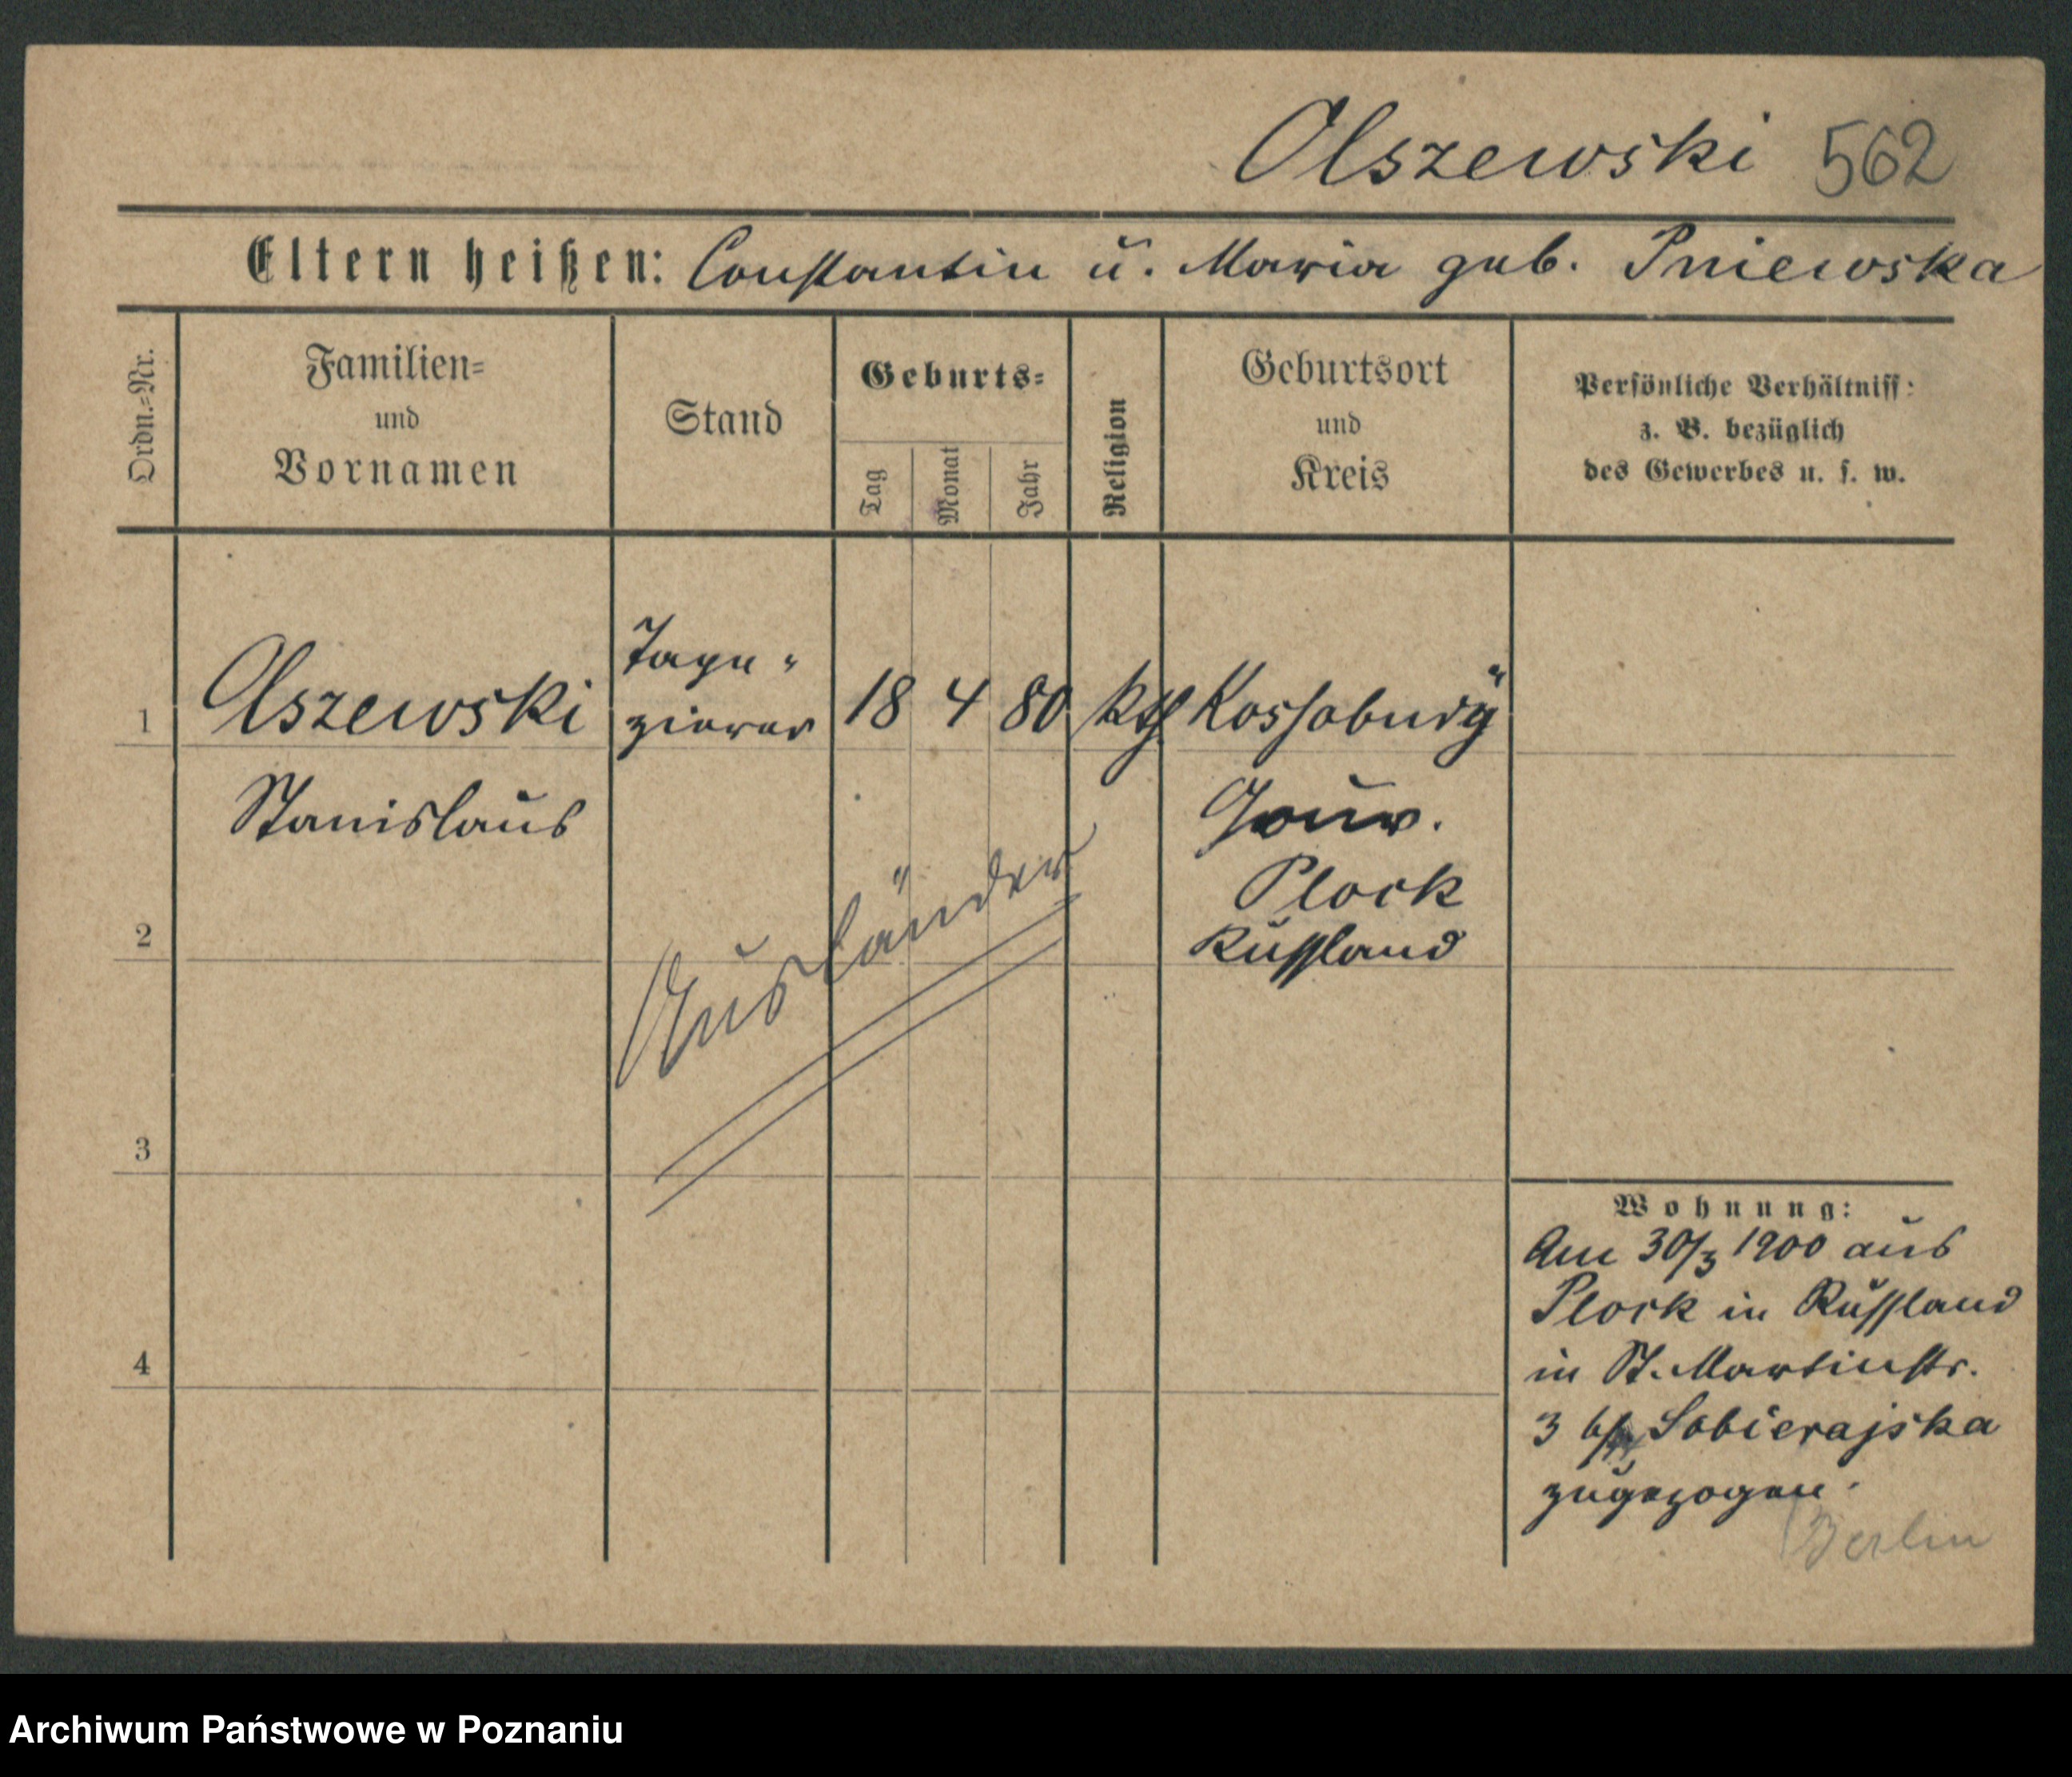 Olszewski 562
Eltern heißen: Constantin u. Maria geb. Pniewska
Ordn.=Nr.
Familien=
und
Vornamen
Stand
Geburts=
Tag
Monat
Jahr
Religion
Geburtsort
und
Kreis
Persönliche Verhältniss:
z. B. bezüglich
des Gewerbes u. s. w.
1
Olszewski
Stanislaus
Tape-
zierer
18 4 80 kth
Kossobudÿ
Gouv.
Plock
Russland
Ausländer
2
3
4
Wohnung:
Am 30/3 1900 aus
Plock in Russland
in St. Martinstr.
3 b/ Sobierajska
zugezogen.
Berlin
Archiwum Państwowe w Poznaniu